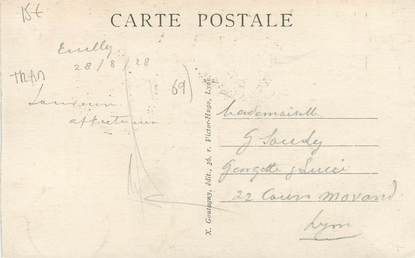 15€
CARTE POSTALE
Ecully
28/8/28
TRAM
69)
Souvenir
affectueux
X. Goutagny, édit., 36, r. Victor-Hugo, Lyon
Mademoiselle
G
Georgette
22 Cours Morand
Lyon